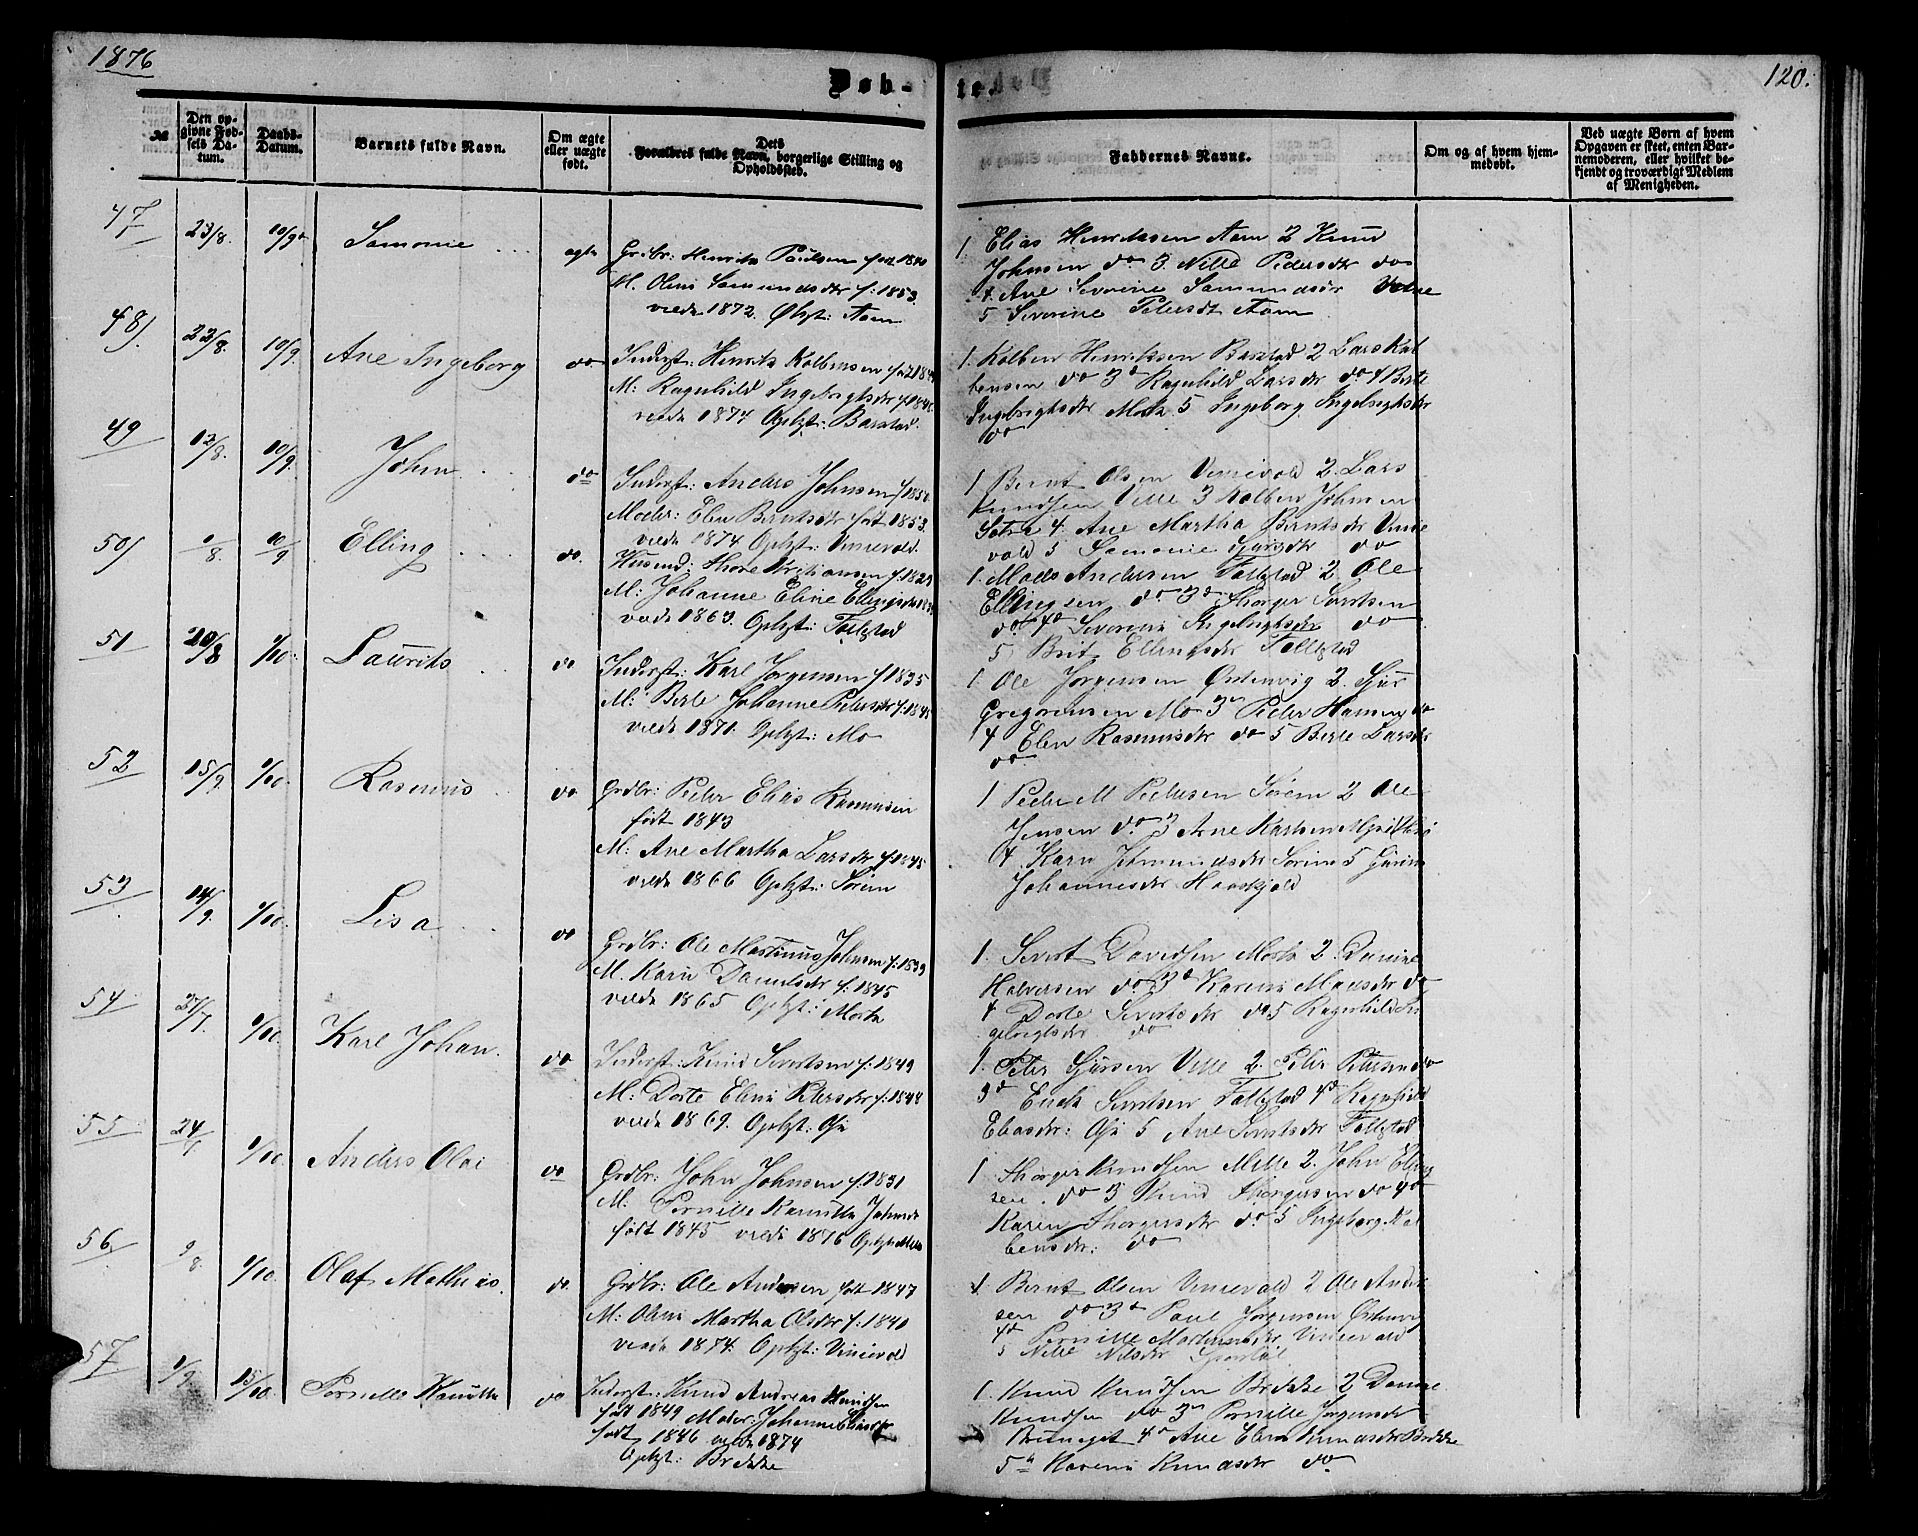 1876
120.
Døb-
te.
№
Den op-
givne Fød-
sels Da-
tum.
Daabs-
Datum.
Barnets fulde Navn.
Om ægte
eller uægte
født.
Dets
Forældres fulde Navn, borgerlige Stilling og
Opholdssted.
Faddernes Navne.
Om og af hvem hjem-
medøbt.
Ved uægte Børn af hvem
Opgaven er skeet, enten Bar-
nemoderen, eller hvilket be-
kjendt og troværdigt Medlem
af Menigheden.
47
23/8.
10/9
Samonie
ægte
Grdbr: Henrik Paulsen
M. Oline Samundsdtr f: 1853.
viede 1872. Aam
1. Elias Henriksen Aam 2 Knud
Johnsen do 3. Nille Pedersdtr do
4. Ane Severine Samundsdtr
5 Severine Petersdt Aam
48)
22/8.
10/9.
Ane Ingeborg
do
Inderst: Henrik Kolbensen
M: Ragnhild Ingebrigtsdtr
viede 1874 Oplzt: Barstad.
1. Kolben Henriksen Barstad 2 Lars Kol
bensen do 3 Ragnhild Larsdtr do 4 Berte
Ingebrigtsdtr Mork 5 Ingeborg Ingebrigtsdtr
do
49
12/8.
10/9.
John
do
Inderst: Anders Johnsen f 1850
Moder: Elen Berntsdtr født 1853.
viede 1874 Oplzt: Vinievold.
1 Bernt Olsen Vinievold 2. Lars
Knudsen Velle 3 Kolben Johnsen
4. Ane Martha Berntsdtr Vinie
vold 5 Samonie do
50)
1/8.
10/9
Elling
do.
Husmd: Thore Kristiansen f: 1829
M: Johanne Eline Ellingsdtr
viede 1863. Oplzt: Follestad
1. Mads Andersen Follestad 2 Ole
Ellingsen do 3 Thorger Sivertsen
do 4 Severine Ingebrigtsdtr do
5 Brit Ellingsdtr Follestad
51
20/8
1/10.
Laurits
do
Inderst: Karl Jørgensen f 1835
M: Berte Johanne Pedersdtr f: 1845
viede 1871. Oplzt: Mo
1. Ole Jørgensen Østenvig 2. Sjur
Gregoriussen Mo 3 Peder Hansen do
4 Elen Rasmusdtr do 5 Berte Larsdtr
do
52
15/9.
1/10.
Rasmus
do
Grdbr: Peder Elias Rasmusen
født 1843
M: Ane Martha Larsdtr f: 1845
viede 1866 Oplzt: Sørem
1 Peder M Pedersen Sørem 2 Ole
Jensen do 3 Arne Karlsen
4. Karn Sørem 5
Johannesdtr Haaskjold
53
14/9.
1/10.
Lisa
do
Grdbr: Ole Martinus Johnsen f: 1839
M. Karn Danielsdtr f: 1845
viede 1865 Oplzt: Mork
1. Sivert Davidsen Mork 2. Daniel
Halversen do 3 Karen Madsdtr do
4 Dorte Sivertsdtr do 5 Ragnhild In
gebrigtsdtr do
54
27/7.
1/10.
Karl Johan.
do
Inderst: Knud Sivertsen f: 1849
M: Dorte Eline Petersdtr f: 1848
viede 1869. Oplzt: Ose
1. Peter Sjursen Velle 2. Peter Petersen do
3 Erick Sivertsen Follestad 4 Ragnhild
Eliasdtr: Osie 5 Ane Sivertsdtr Follestad
55
24/7
1/10.
Anders Olai
do
Grdbr: John Johnsen f: 1831
M. Pernille Kanutta Johnsdt
født 1845 viede 1876 Oplzt: Melle
1 Thorger Knudsen Mille 2. John Elling
sen. do 3 Knud Thorgersen do 4
Karen Thorgersdtr do 5 Ingeborg Kol
bensdtr: do
56
9/8
1/10.
Olaf Mathias.
do.
Grdbr: Ole Andersen født 1847
M: Oline Martha Olsdtr f: 1840
viede 1874: Oplzt: Vinievold
1. Bernt Olsen Vinievold 2 Ole Ander
sen do 3 Paul Jørgensen Østenvig
4 Pernille Martinusdtr Vinievold
5 Nille Nilsdtr
57.
1/9
15/10.
Pernille Kanutta
do
Inderst: Knud Andreas Knudsen
født 1849 Moder: Johanne Eliasdtr
født 1846 viede 1874
Oplzt: Brekke
1. Knud Knudsen Brekke 2 Daniel
Knudsen do 3 Pernille Jørgensdtr
4 Ane Elen Knudsdtr Brekke
5 Karen Knudsdtr do